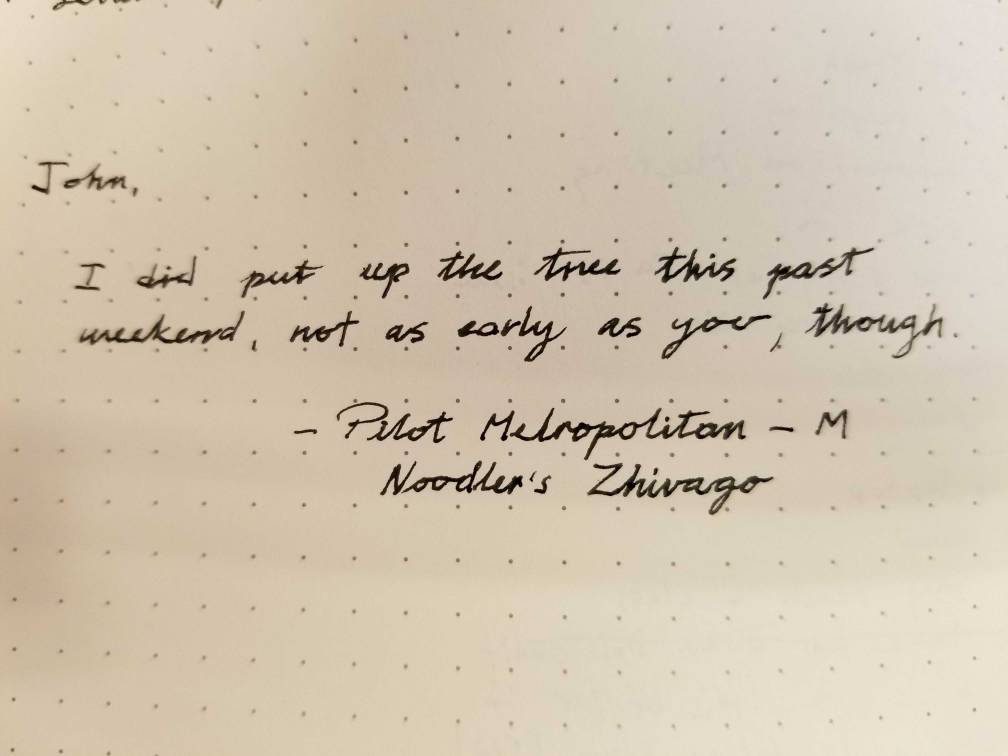 John,
I did put up the tree this past
weekend, not as early as you, though.
- Pilot Metropolitan - M
Noodler's Zhivago